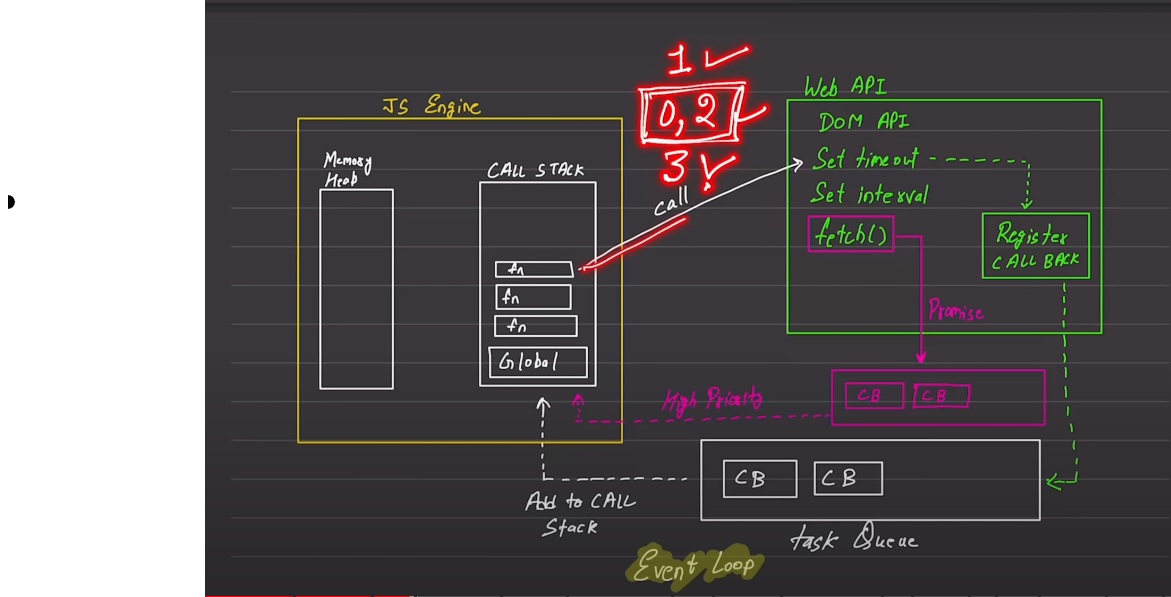 1
0, 2
3
JS Engine
Memory
Heab
CALL STACK
fn
fn
fn
Global
call
Web API
DOM API
Set timeout
Set interval
fetch()
Register
CALL BACK
Promise
CB
CB
High Priority
CB
CB
Add to CALL
Stack
task Queue
Event Loop